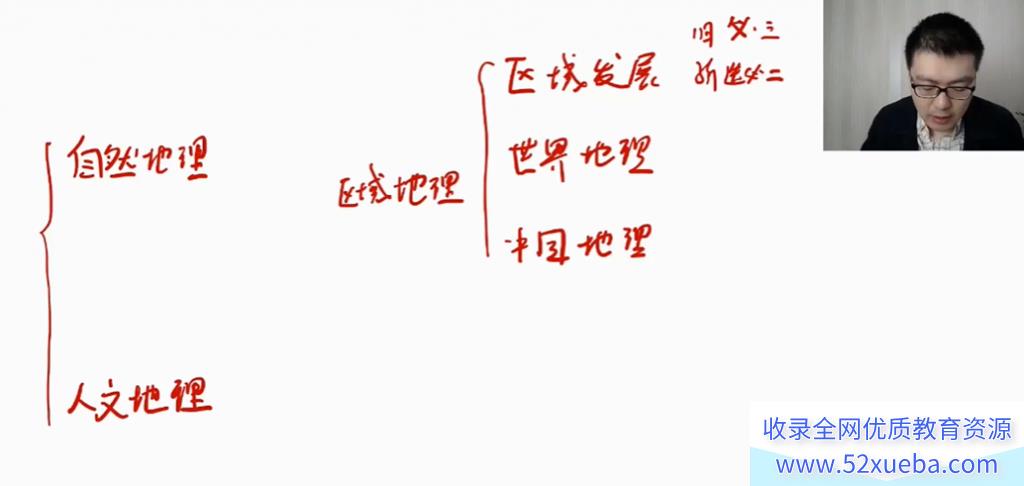 自然地理
人文地理
区域地理
区域发展
旧 必三
新 选必二
世界地理
中国地理
收录全网优质教育资源
www.52xueba.com